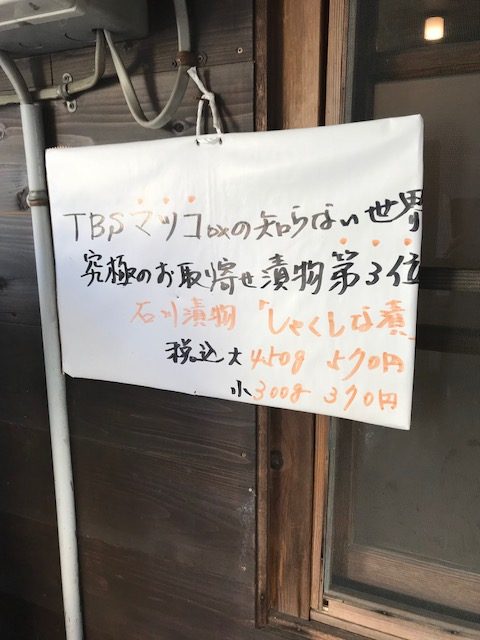 TBSマツコDXの知らない世界
究極のお取寄せ漬物第3位
石川漬物「しゃくしな漬」
税込大450g 570円
小300g 370円